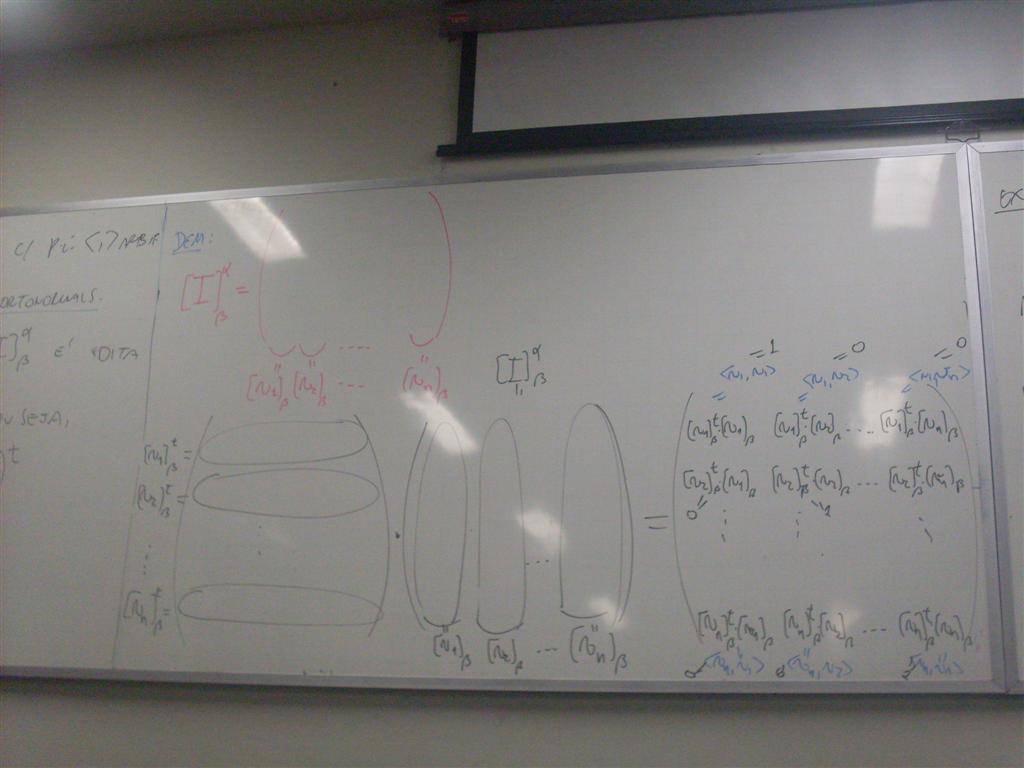 c/ p.i. <,>
ORTONORMAIS.
I]^α_β É DITA
OU SEJA,
)^t
DEM:
[I]^α_β =
[v_1]_β [v_2]_β ... [v_n]_β
[I]^α_β
[v_1]^t_β =
[v_2]^t_β =
[v_n]^t_β =
·
[v_1]_β [v_2]_β ... [v_n]_β
=
=1 =0 =0
<v_1,v_1> <v_1,v_2> <v_1,v_n>
[v_1]^t_β·[v_1]_β [v_1]^t_β·[v_2]_β .... [v_1]^t_β·[v_n]_β
[v_2]^t_β·[v_1]_β [v_2]^t_β·[v_2]_β ... [v_2]^t_β·[v_n]_β
0 1
[v_n]^t_β·[v_1]_β [v_n]^t_β[v_2]_β ... [v_n]^t_β[v_n]_β
<v_n,v_1> <v_n,v_2> <v_n,v_n>